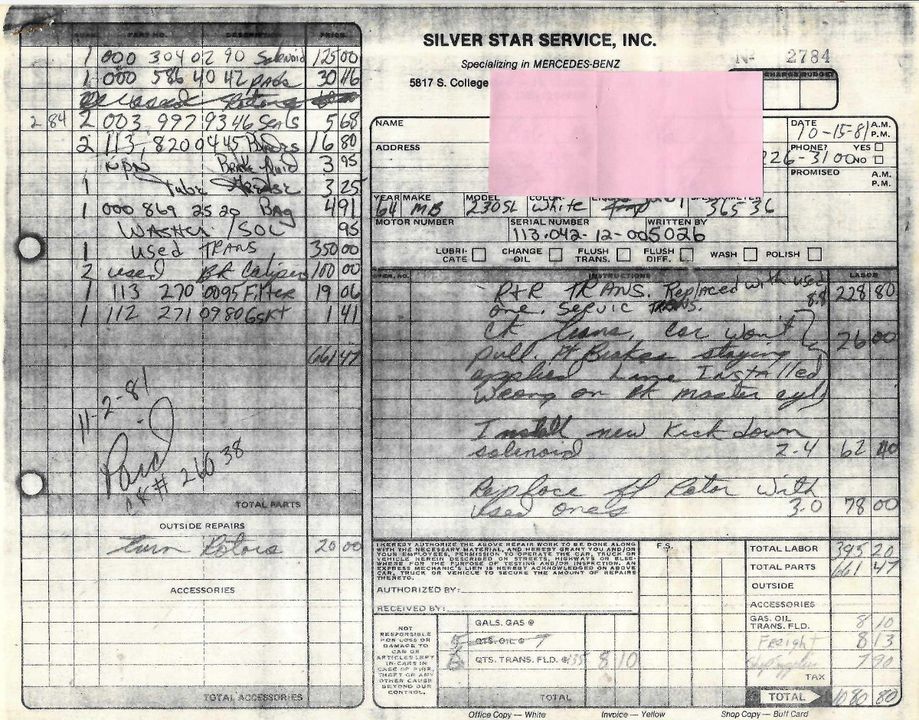 SILVER STAR SERVICE, INC.
Specializing in MERCEDES-BENZ
5817 S. College
No 2784
PART NO. DESCRIPTION PRICE
1 000 304 02 90 Solenoid 125 00
1 000 586 40 42 pads 30 16
used Rotors
2 84 2 003 997 93 46 Seals 5 68
2 113 820 04 45 16 80
NPN Brake fluid 3 95
1 Tube Grease 3 25
1 000 869 25 20 Bag 4 91
WASHER / SOL 95
1 used TRANS 350 00
2 used Bk Caliper 100 00
1 113 270 00 95 Filter 19 06
1 112 271 09 80 Gskt 1 41
661 47
11-2-81
Paid
CK # 26638
TOTAL PARTS
OUTSIDE REPAIRS
turn Rotors 20 00
ACCESSORIES
TOTAL ACCESSORIES
NAME
DATE 10-15-81 A.M. P.M.
ADDRESS
PHONE? YES NO
226-3100
PROMISED A.M. P.M.
YEAR MAKE MODEL COLOR
64 MB 230SL White 36536
MOTOR NUMBER SERIAL NUMBER WRITTEN BY
113-042-12-005026
LUBRICATE CHANGE OIL FLUSH TRANS. FLUSH DIFF. WASH POLISH
INSTRUCTIONS LABOR
R+R TRANS. Replaced with used 8.8 228 80
one. Servic TRANS.
Ck trans, car won't 26 00
pull. Ft Brakes staying
applied Line Installed
Wrong on Bk master cyl
Install new Kick down
solenoid 2.4 62 40
Replace ft Rotor with
used ones 3.0 78 00
I HEREBY AUTHORIZE THE ABOVE REPAIR WORK TO BE DONE ALONG
WITH THE NECESSARY MATERIAL, AND HEREBY GRANT YOU AND/OR
YOUR EMPLOYEES, PERMISSION TO OPERATE THE CAR, TRUCK OR
VEHICLE HEREIN DESCRIBED ON STREETS, HIGHWAYS OR ELSE-
WHERE FOR THE PURPOSE OF TESTING AND/OR INSPECTION. AN
EXPRESS MECHANIC'S LIEN IS HEREBY ACKNOWLEDGED ON ABOVE
CAR, TRUCK OR VEHICLE TO SECURE THE AMOUNT OF REPAIRS
THERETO.
AUTHORIZED BY:
RECEIVED BY:
F.S.
NOT
RESPONSIBLE
FOR LOSS OR
DAMAGE TO
CAR OR
ARTICLES LEFT
IN CARS IN
CASE OF FIRE,
THEFT OR ANY
OTHER CAUSE
BEYOND OUR
CONTROL.
GALS. GAS @
QTS. OIL @
6 QTS. TRANS. FLD. @ 135 8 10
TOTAL
TOTAL LABOR 395 20
TOTAL PARTS 661 47
OUTSIDE
ACCESSORIES
GAS. OIL TRANS. FLD. 8 10
Freight 8 13
Shop Supplies 7 90
TAX
TOTAL 1080 80
Office Copy — White Invoice — Yellow Shop Copy — Buff Card